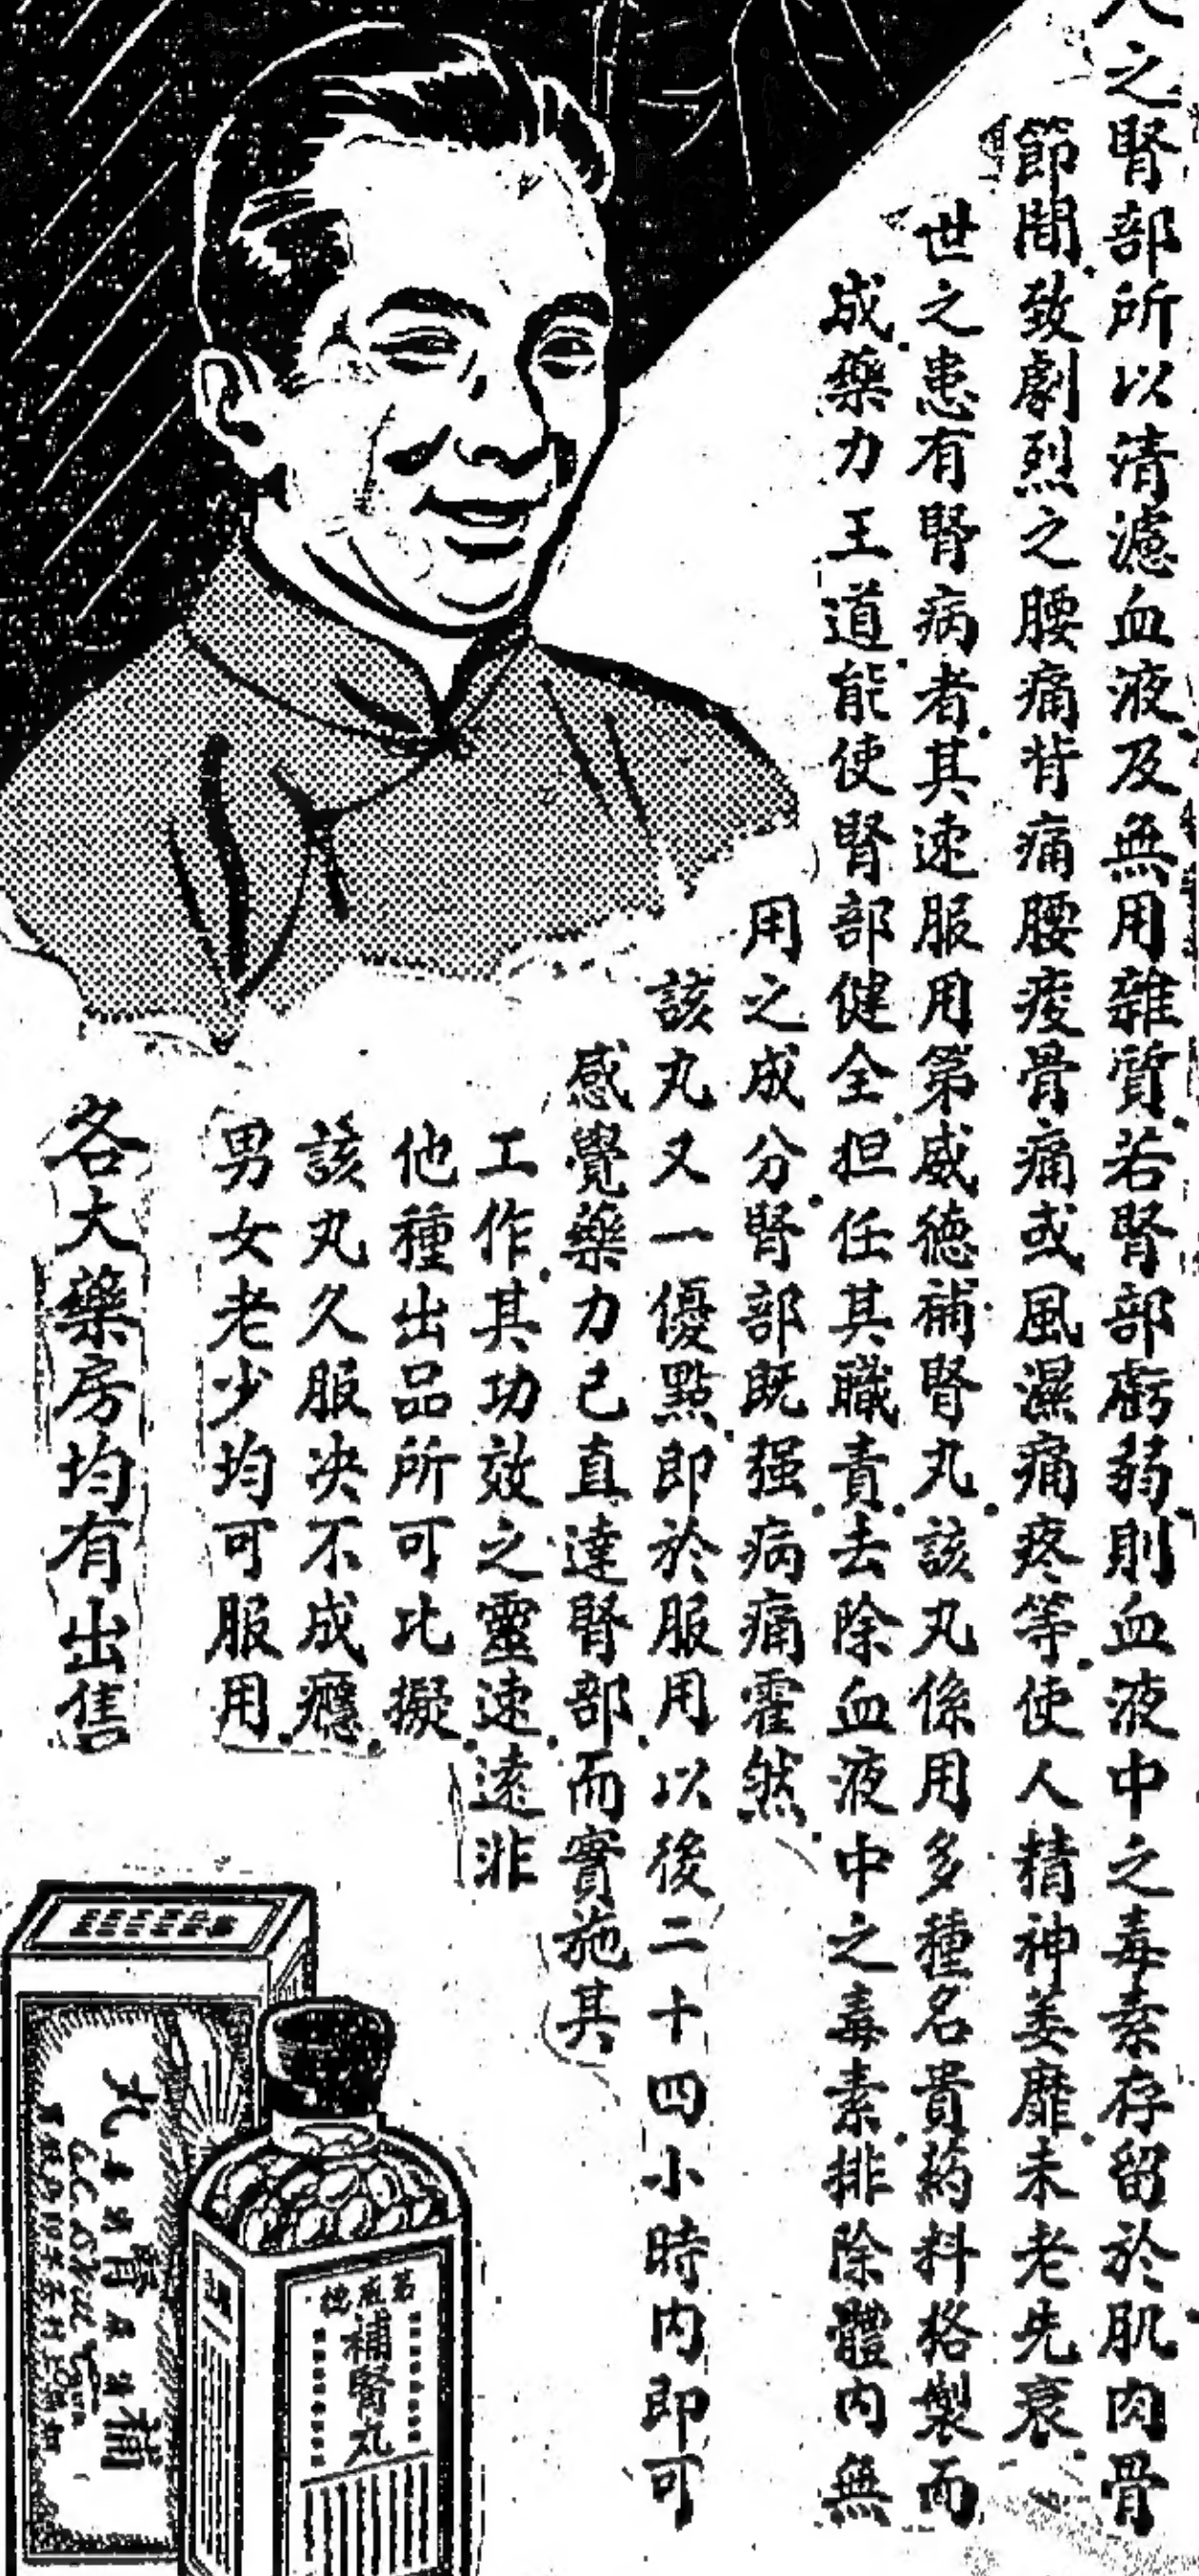 人之腎部所以清濾血液及無用雜質若腎部虧弱則血液中之毒素存留於肌肉骨
節間致劇烈之腰痛背痛腰痠骨痛或風濕痛疼等使人精神萎靡未老先衰
世之患有腎病者其速服用第威德補腎丸該丸係用多種名貴葯料格製而
成藥力王道能使腎部健全担任其職責去除血液中之毒素排除體內無
用之成分腎部既强病痛霍然
該丸又一優點即於服用以後二十四小時內即可
感覺藥力已直達腎部而實施其
工作其功效之靈速遠非
他種出品所可比擬
該丸久服决不成癮
男女老少均可服用
各大藥房均有出售
第威德
補腎丸